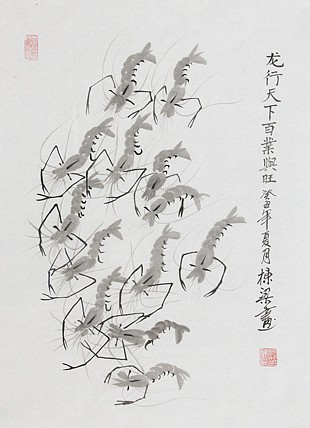 龙行天下百業興旺 癸丑年夏月 棟梁畫